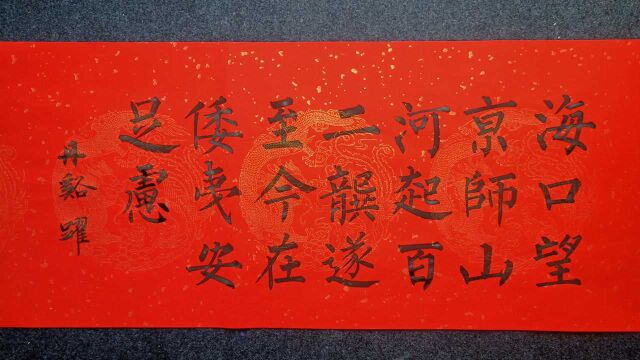 海口望
亰師山
河起百
二龔遂
至今在
倭夷安
足慮
丹谿躍